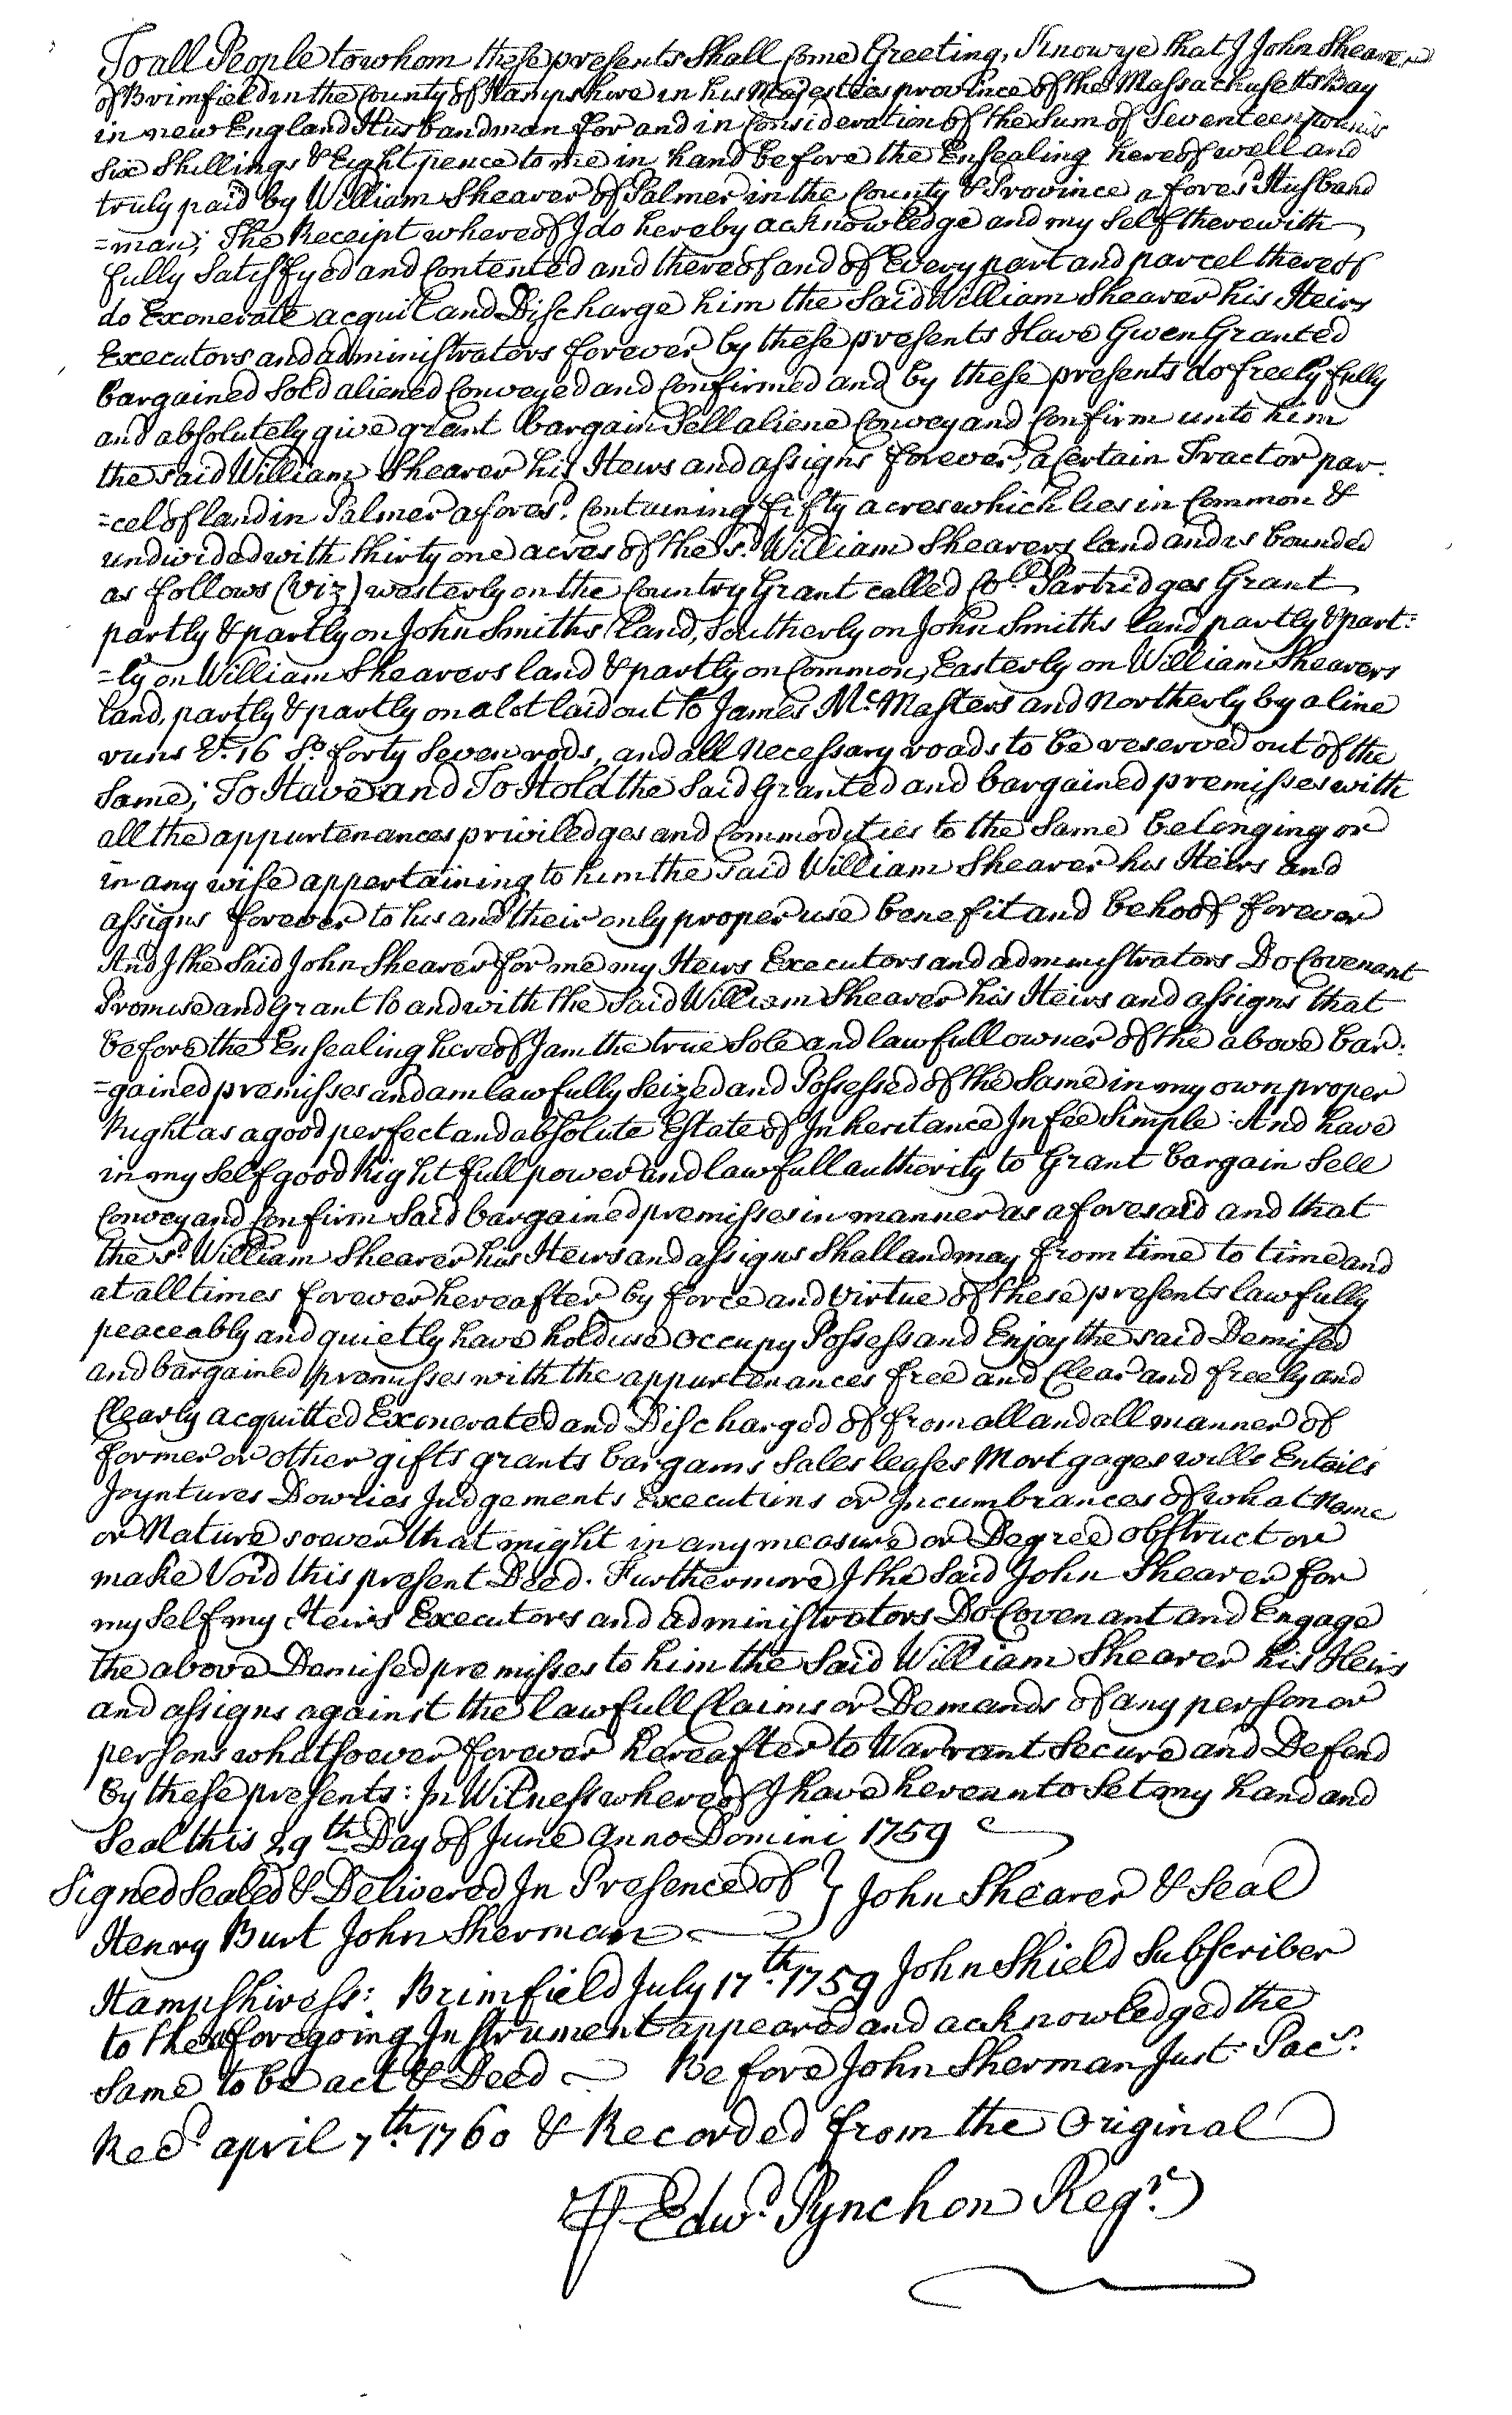 To all People to whom these presents Shall Come Greeting, Know ye that I John Shearer
of Brimfield in the County of Hampshire in his Majesties province of the Massachusetts Bay
in new England Husbandman for and in Consideration of the Sum of Seventeen pounds
Six Shillings & Eight pence to me in hand before the Ensealing hereof well and
truly paid by William Shearer of Palmer in the County & Province afores.d Husband
=man; The Receipt whereof I do hereby acknowledge and my Self therewith
fully Satisfyed and Contented and thereof and of Every part and parcel thereof
do Exonerate acquit and Discharge him the Said William Shearer his Heirs
Executors and administrators forever by these presents Have Given Granted
bargained Sold aliened Conveyed and Confirmed and by these presents do freely fully
and absolutely give grant bargain Sell aliene Convey and Confirm unto him
the said William Shearer his Heirs and assigns forever, a Certain Tract or par-
=cel of land in Palmer afores.d Containing fifty acres which lies in Common &
undivided with thirty one acres of the s.d William Shearers land and is bounded
as follows (viz) westerly on the Country Grant called Co.ll Partridges Grant
partly & partly on John Smiths land, Southerly on John Smiths land partly & part=
=ly on William Shearers land & partly on Common, Easterly on William Shearers
land, partly & partly on a lot laid out to James Mc Masters and Northerly by a line
runs E.t 16 S.o forty Seven rods, and all Necessary roads to be reserved out of the
Same; To Have and To Hold the Said Granted and bargained premisses with
all the appurtenances priviledges and Commodities to the Same belonging or
in any wise appertaining to him the said William Shearer his Heirs and
assigns forever to his and their only proper use benefit and behoof forever
And I the Said John Shearer for me my Heirs Executors and administrators Do Covenant
Promise and Grant to and with the Said William Shearer his Heirs and assigns that
before the Ensealing hereof I am the true Sole and lawfull owner of the above bar=
=gained premisses and am lawfully Seized and Possessed of the Same in my own proper
Right as a good perfect and absolute Estate of Inheritance In fee Simple: And have
in my Self good Right full power and lawfull authority to Grant bargain Sell
Convey and Confirm Said bargained premisses in manner as aforesaid and that
the s.d William Shearer his Heirs and assigns Shall and may from time to time and
at all times forever hereafter by force and Virtue of these presents lawfully
peaceably and quietly have hold use occupy Possess and Enjoy the said Demised
and bargained premisses with the appurtenances free and Clear and freely and
Clearly acquitted Exonerated and Discharged of from all and all manner of
former or other gifts grants bargains Sales leases Mortgages wills Entails
Joyntures Dowries Judgements Executions or Incumbrances of what Name
or Nature soever that might in any measure or Degree obstruct or
make Void this present Deed. Furthermore I the Said John Shearer for
my Self my Heirs Executors and administrators Do Covenant and Engage
the above Demised premisses to him the Said William Shearer his Heirs
and assigns against the lawfull Claims or Demands of any person or
persons whatsoever forever hereafter to Warrant Secure and Defend
by these presents: In Witness whereof I have hereunto Set my hand and
Seal this 29th Day of June Anno Domini 1759
Signed Sealed & Delivered In Presence of } John Shearer & Seal
Henry Burt John Sherman
Hampshire ss: Brimfield July 17th. 1759 John Shield Subscriber
to the aforegoing Instrument appeared and acknowledged the
Same to be act & Deed — Before John Sherman Just. Pac.s
Rec.d april 7th. 1760 & Recorded from the Original
Edw.d Pynchon Reg.r